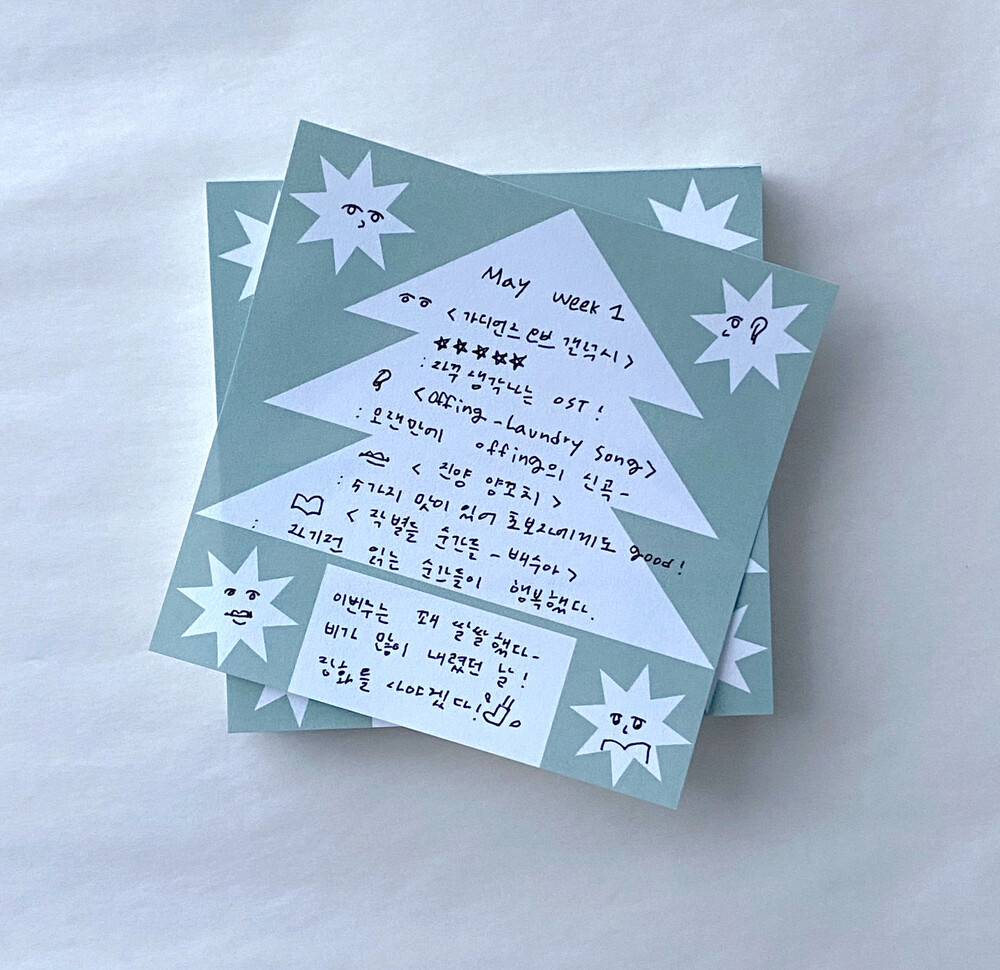 May week 1
<가디언즈 오브 갤럭시>
★★★★★
: 자꾸 생각나는 OST!
<offing - Laundry song>
: 오랜만에 offing의 신곡~
< 진양 양꼬치 >
: 5가지 맛이 있어 초보자에게도 good!
< 작별들 순간들 - 배수아 >
: 자기전 읽는 순간들이 행복했다.
이번주는 꽤 쌀쌀했다~
비가 많이 내렸던 날!
장화를 사야겠다!